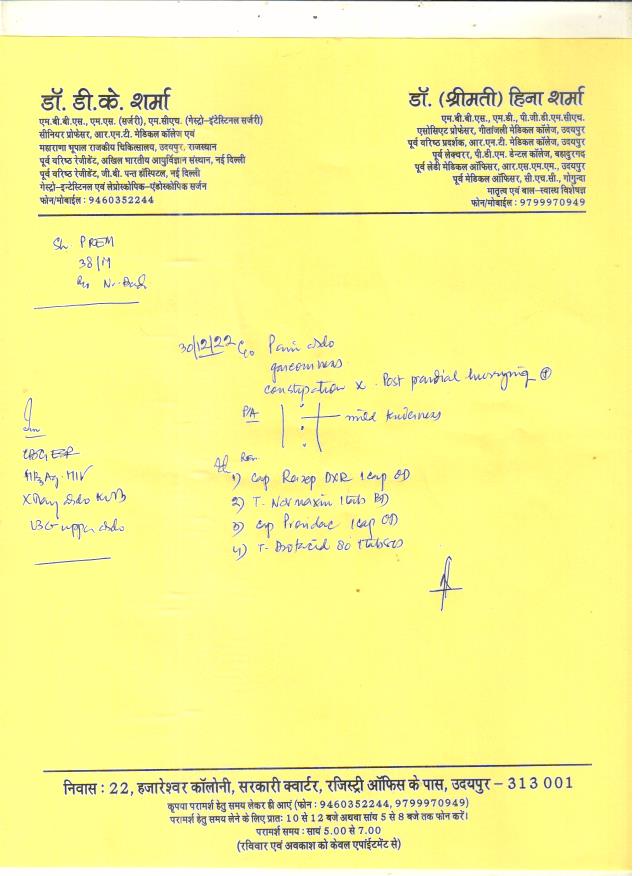 डॉ. डी.के. शर्मा
एम.बी.बी.एस., एम.एस. (सर्जरी), एम.सीएच. (गेस्ट्रो-इंटेस्टिनल सर्जरी)
सीनियर प्रोफेसर, आर.एन.टी. मेडिकल कॉलेज एवं
महाराणा भूपाल राजकीय चिकित्सालय, उदयपुर, राजस्थान
पूर्व वरिष्ठ रेजीडेंट, अखिल भारतीय आयुर्विज्ञान संस्थान, नई दिल्ली
पूर्व वरिष्ठ रेजीडेंट, जी.बी. पन्त हॉस्पिटल, नई दिल्ली
गेस्ट्रो-इन्टेस्टिनल एवं लेप्रोस्कोपिक-एंडोस्कोपिक सर्जन
फोन/मोबाईल : 9460352244
डॉ. (श्रीमती) हिना शर्मा
एम.बी.बी.एस., एम.डी., पी.जी.डी.एम.सीएच.
एसोसिएट प्रोफेसर, गीतांजली मेडिकल कॉलेज, उदयपुर
पूर्व वरिष्ठ प्रदर्शक, आर.एन.टी. मेडिकल कॉलेज, उदयपुर
पूर्व लेक्चरर, पी.डी.एम. डेन्टल कॉलेज, बहादुरगढ़
पूर्व लेडी मेडिकल ऑफिसर, आर.एस.एम.एम., उदयपुर
पूर्व मेडिकल ऑफिसर, सी.एच.सी., गोगुन्दा
मातृत्व एवं बाल-स्वास्थ विशेषज्ञ
फोन/मोबाईल : 9799970949
Sh. PREM
38/M
30/12/22 C/o Pain abdo
constipation X Post prandial hurrying +
P/A mild tenderness
HBsAg HIV
X Ray abdo KUB
USG upper abdo
1) Cap DXR 1 cap OD
2) T. Normaxin 1 tab BD
3) Cap 1 cap OD
4) T. 80 1 tab SOS
निवास : 22, हजारेश्वर कॉलोनी, सरकारी क्वार्टर, रजिस्ट्री ऑफिस के पास, उदयपुर – 313 001
कृपया परामर्श हेतु समय लेकर ही आएं (फोन : 9460352244, 9799970949)
परामर्श हेतु समय लेने के लिए प्रातः 10 से 12 बजे अथवा सांय 5 से 8 बजे तक फोन करें।
परामर्श समय : सायं 5.00 से 7.00
(रविवार एवं अवकाश को केवल एपांईटमेंट से)